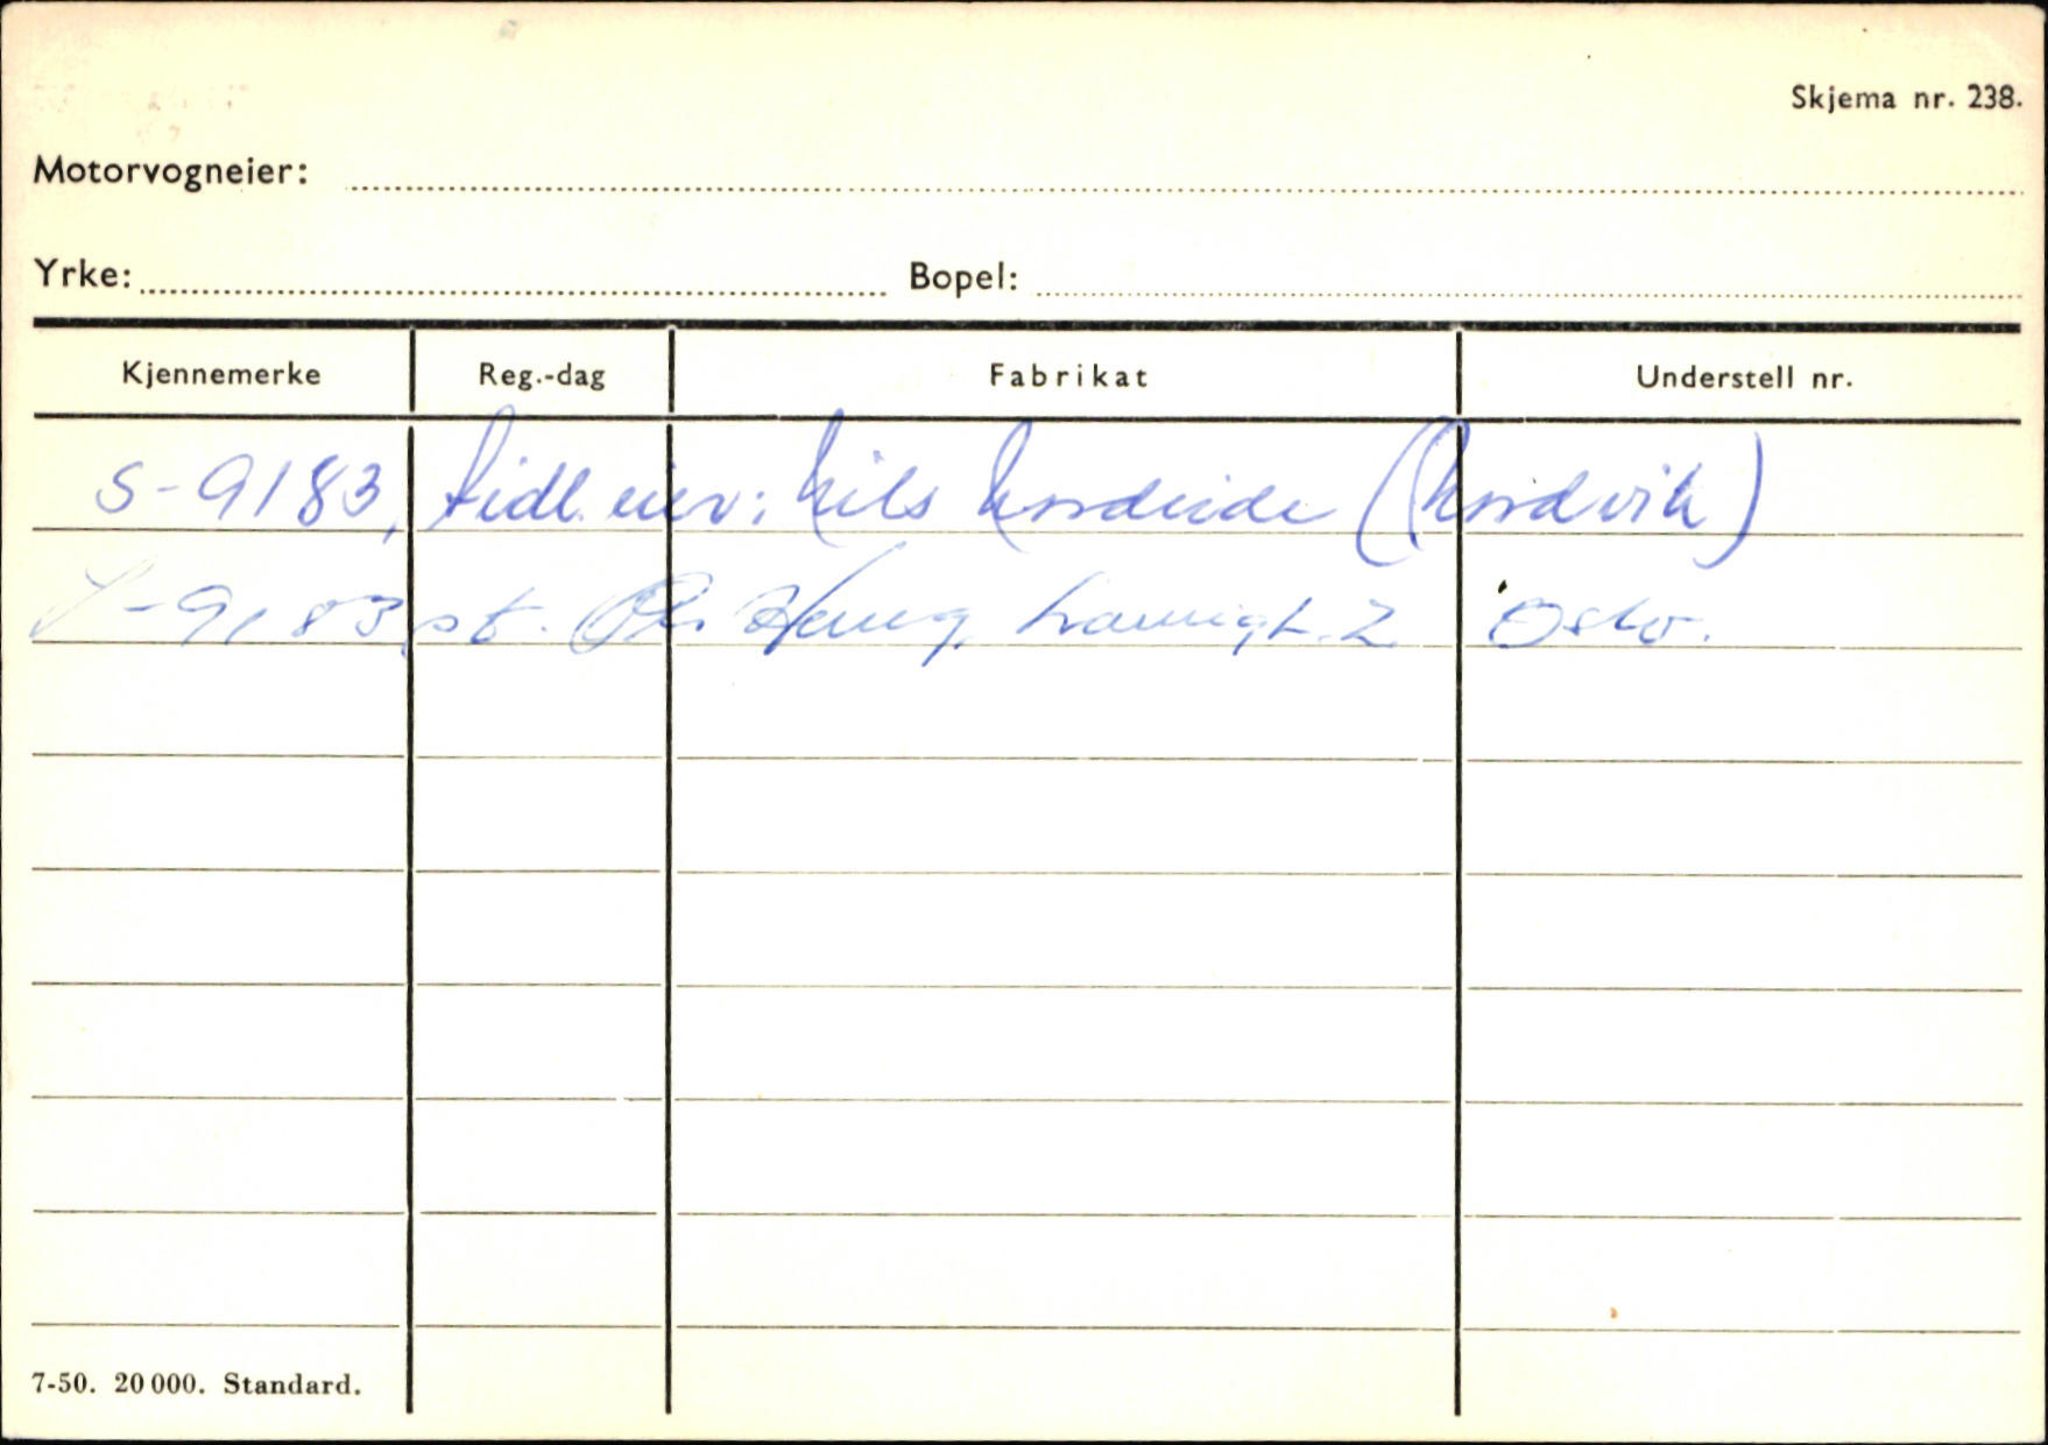 Skjema nr. 238.
Motorvogneier:
Yrke: Bopel:
Kjennemerke Reg.-dag Fabrikat Understell nr.
S-9183, tidl. eier: Nils Nordeide (Nordvik)
S-9183, st. Oslo.
7-50. 20 000. Standard.